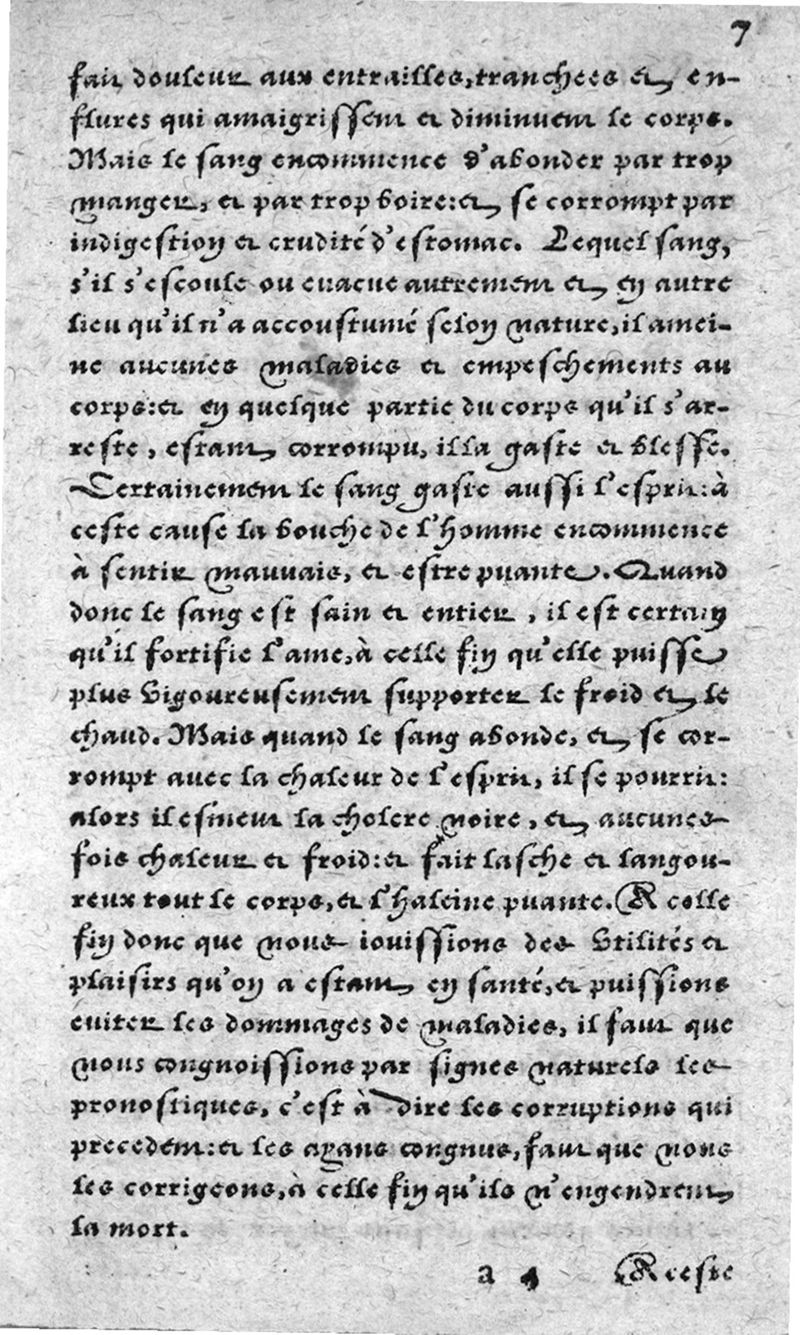 7
fait douleur aux entrailles, tranchees et en-
flures qui amaigrissent et diminuent le corps.
Mais le sang encommence d'abonder par trop
manger, et par trop boire: et se corrompt par
indigestion et crudité d'estomac. Lequel sang,
s'il s'escoule ou euacue autrement et en autre
lieu qu'il n'a accoustumé selon nature, il amei-
ne aucunes maladies et empeschements au
corps: et en quelque partie du corps qu'il s'ar-
reste, estant corrompu, il la gaste et blesse.
Certainement le sang gaste aussi l'esprit: à
ceste cause la bouche de l'homme encommence
à sentir mauuais, et estre puante. Quand
donc le sang est sain et entier, il est certain
qu'il fortifie l'ame, à celle fin qu'elle puisse
plus vigoureusement supporter le froid et le
chaud. Mais quand le sang abonde, et se cor-
rompt auec la chaleur de l'esprit, il se pourrit:
alors il esmeut la cholere noire, et aucunes
fois chaleur et froid: et fait lasche et langou-
reux tout le corps, et l'haleine puante. A celle
fin donc que nous iouissions des vtilités et
plaisirs qu'on a estant en santé, et puissions
euiter les dommages de maladies, il faut que
nous congnoissions par signes naturels les
pronostiques, c'est à dire les corruptions qui
precedent: et les ayans congnus, faut que nous
les corrigeons, à celle fin qu'ils n'engendrent
la mort.
a 4 A ceste